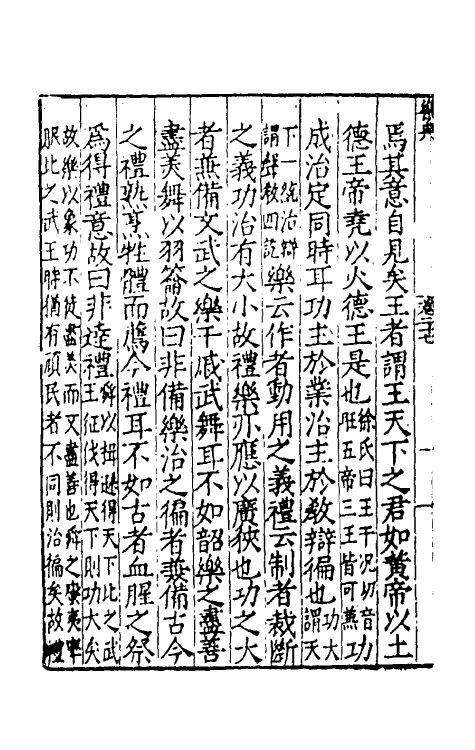 樂典
焉其意自見矣王者謂王天下之君如黄帝以土
德王帝堯以火德王是也徐氏曰王于況切音旺五帝三王皆可兼功
成治定同時耳功主於業治主於敎辯徧也功大謂天
下一統治辯謂聲敎四訖樂云作者動用之義禮云制者裁斷
之義功治有大小故禮樂亦應以廣狹也功之大
者兼備文武之樂干戚武舞耳不如韶樂之盡善
盡美舞以羽籥故曰非備樂治之徧者兼備古今
之禮熟烹牲體而薦今禮耳不如古者血腥之祭
爲得禮意故曰非達禮舜以揖遜得天下比之武王征伐得天下則功大矣
故樂以象功不徒盡美而又盡善也舜之蠻夷率服比之武王時猶有頑民者不同則治徧矣故禮